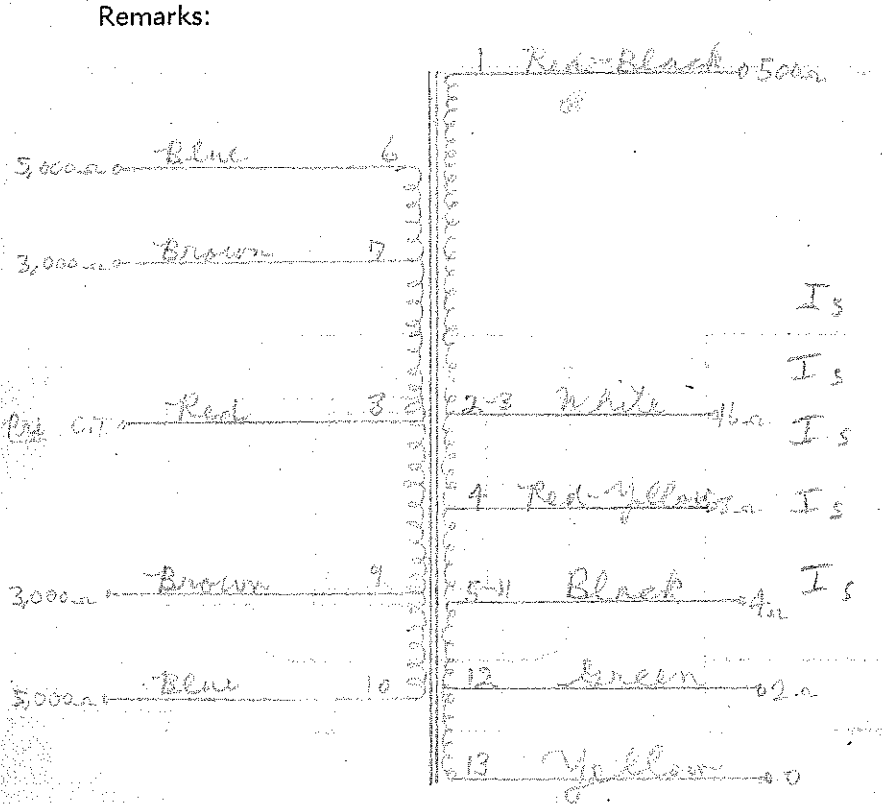 Remarks:
1 Red-Black 500Ω
5,000Ω Blue 6
3,000Ω Brown 7
I s
I s
Pri C.T. Red 8 2-3 White 16Ω I s
4 Red-Yellow 8Ω I s
3,000Ω Brown 9 5-11 Black 4Ω I s
5,000Ω Blue 10 12 Green 2Ω
13 Yellow 0